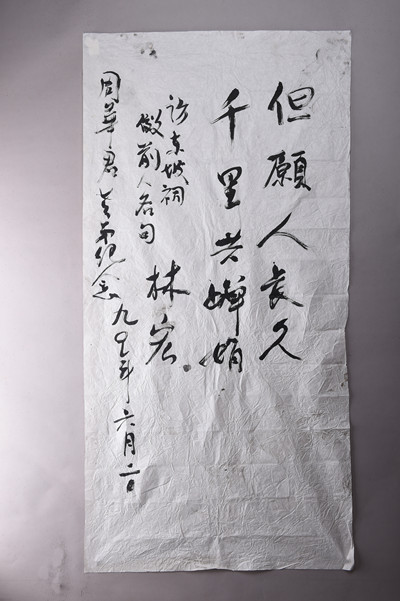 但願人長久
千里共嬋娟
访东坡祠
做前人名句
林宏
周華君 弟纪念
九 年六月二日